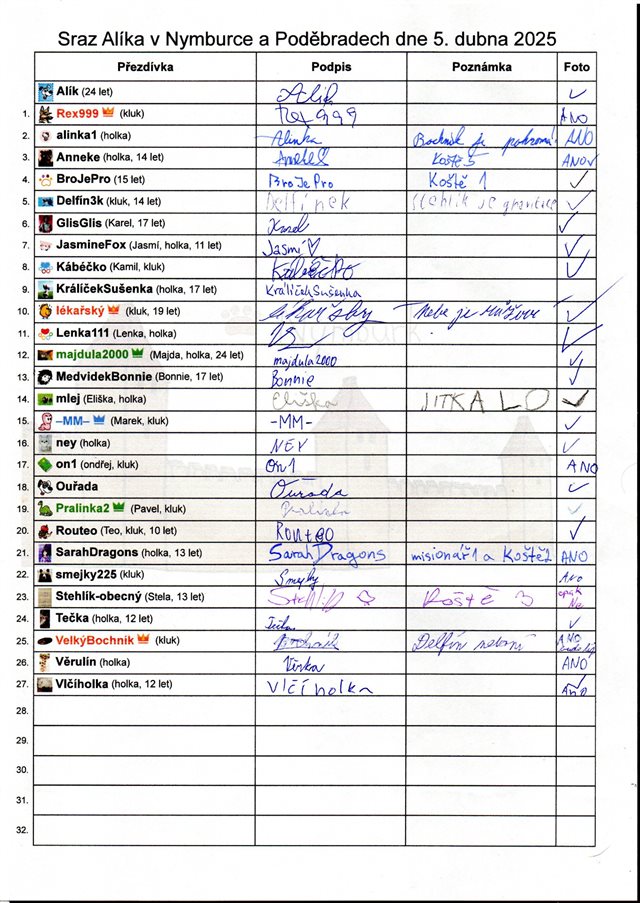 Sraz Alíka v Nymburce a Poděbradech dne 5. dubna 2025
Přezdívka Podpis Poznámka Foto
Alík (24 let) Alík ✓
1. Rex999 (kluk) Rex999 ANO
2. alinka1 (holka) Alinka Bochník je ANO
3. Anneke (holka, 14 let) Koště 5 ANO
4. BroJePro (15 let) BroJePro Koště 1 ✓
5. Delfín3k (kluk, 14 let) Delfínek Stehlík je ✓
6. GlisGlis (Karel, 17 let) Karel ✓
7. JasmineFox (Jasmí, holka, 11 let) Jasmí ♡ ✓
8. Kábéčko (Kamil, kluk) Kábéčko ✓
9. KrálíčekSušenka (holka, 17 let) KrálíčekSušenka ✓
10. lékařský (kluk, 19 let) lékařský Nebe je ✓
11. Lenka111 (Lenka, holka) ✓
12. majdula2000 (Majda, holka, 24 let) majdula2000 ✓
13. MedvidekBonnie (Bonnie, 17 let) Bonnie ✓
14. mlej (Eliška, holka) Eliška JITKA LO ✓
15. –MM– (Marek, kluk) –MM– ✓
16. ney (holka) NEY ✓
17. on1 (ondřej, kluk) On1 ANO
18. Ouřada Ouřada ✓
19. Pralinka2 (Pavel, kluk) Pralinka ✓
20. Routeo (Teo, kluk, 10 let) Routeo ✓
21. SarahDragons (holka, 13 let) SarahDragons misionář1 a Koště2 ANO
22. smejky225 (kluk) Smejky ANO
23. Stehlík-obecný (Stela, 13 let) Stehlík Koště 3
24. Tečka (holka, 12 let) Tečka ✓
25. VelkýBochník (kluk) Bochník Delfín ANO
26. Věrulín (holka) Věrka ANO
27. Vlčíholka (holka, 12 let) Vlčíholka ANO
28.
29.
30.
31.
32.